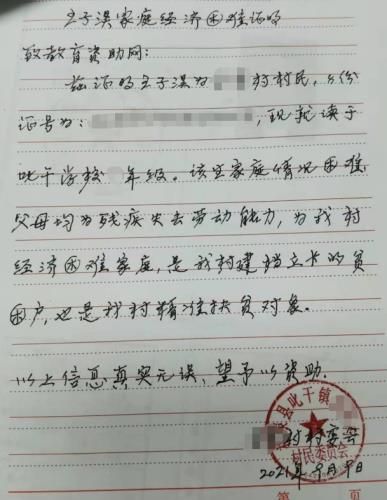 王子淏家庭经济困难证明
致教育资助网：
兹证明王子淏为 村村民，身份
证号为： ，现就读于
此干学校 年级。该生家庭情况困难
父母均为残疾失去劳动能力，为我村
经济困难家庭，是我村建档立卡的贫
困户，也是我村精准扶贫对象。
以上信息真实无误，望予以资助.
县此干镇
村村委会
村民委员会
2021年9月9日
第 页